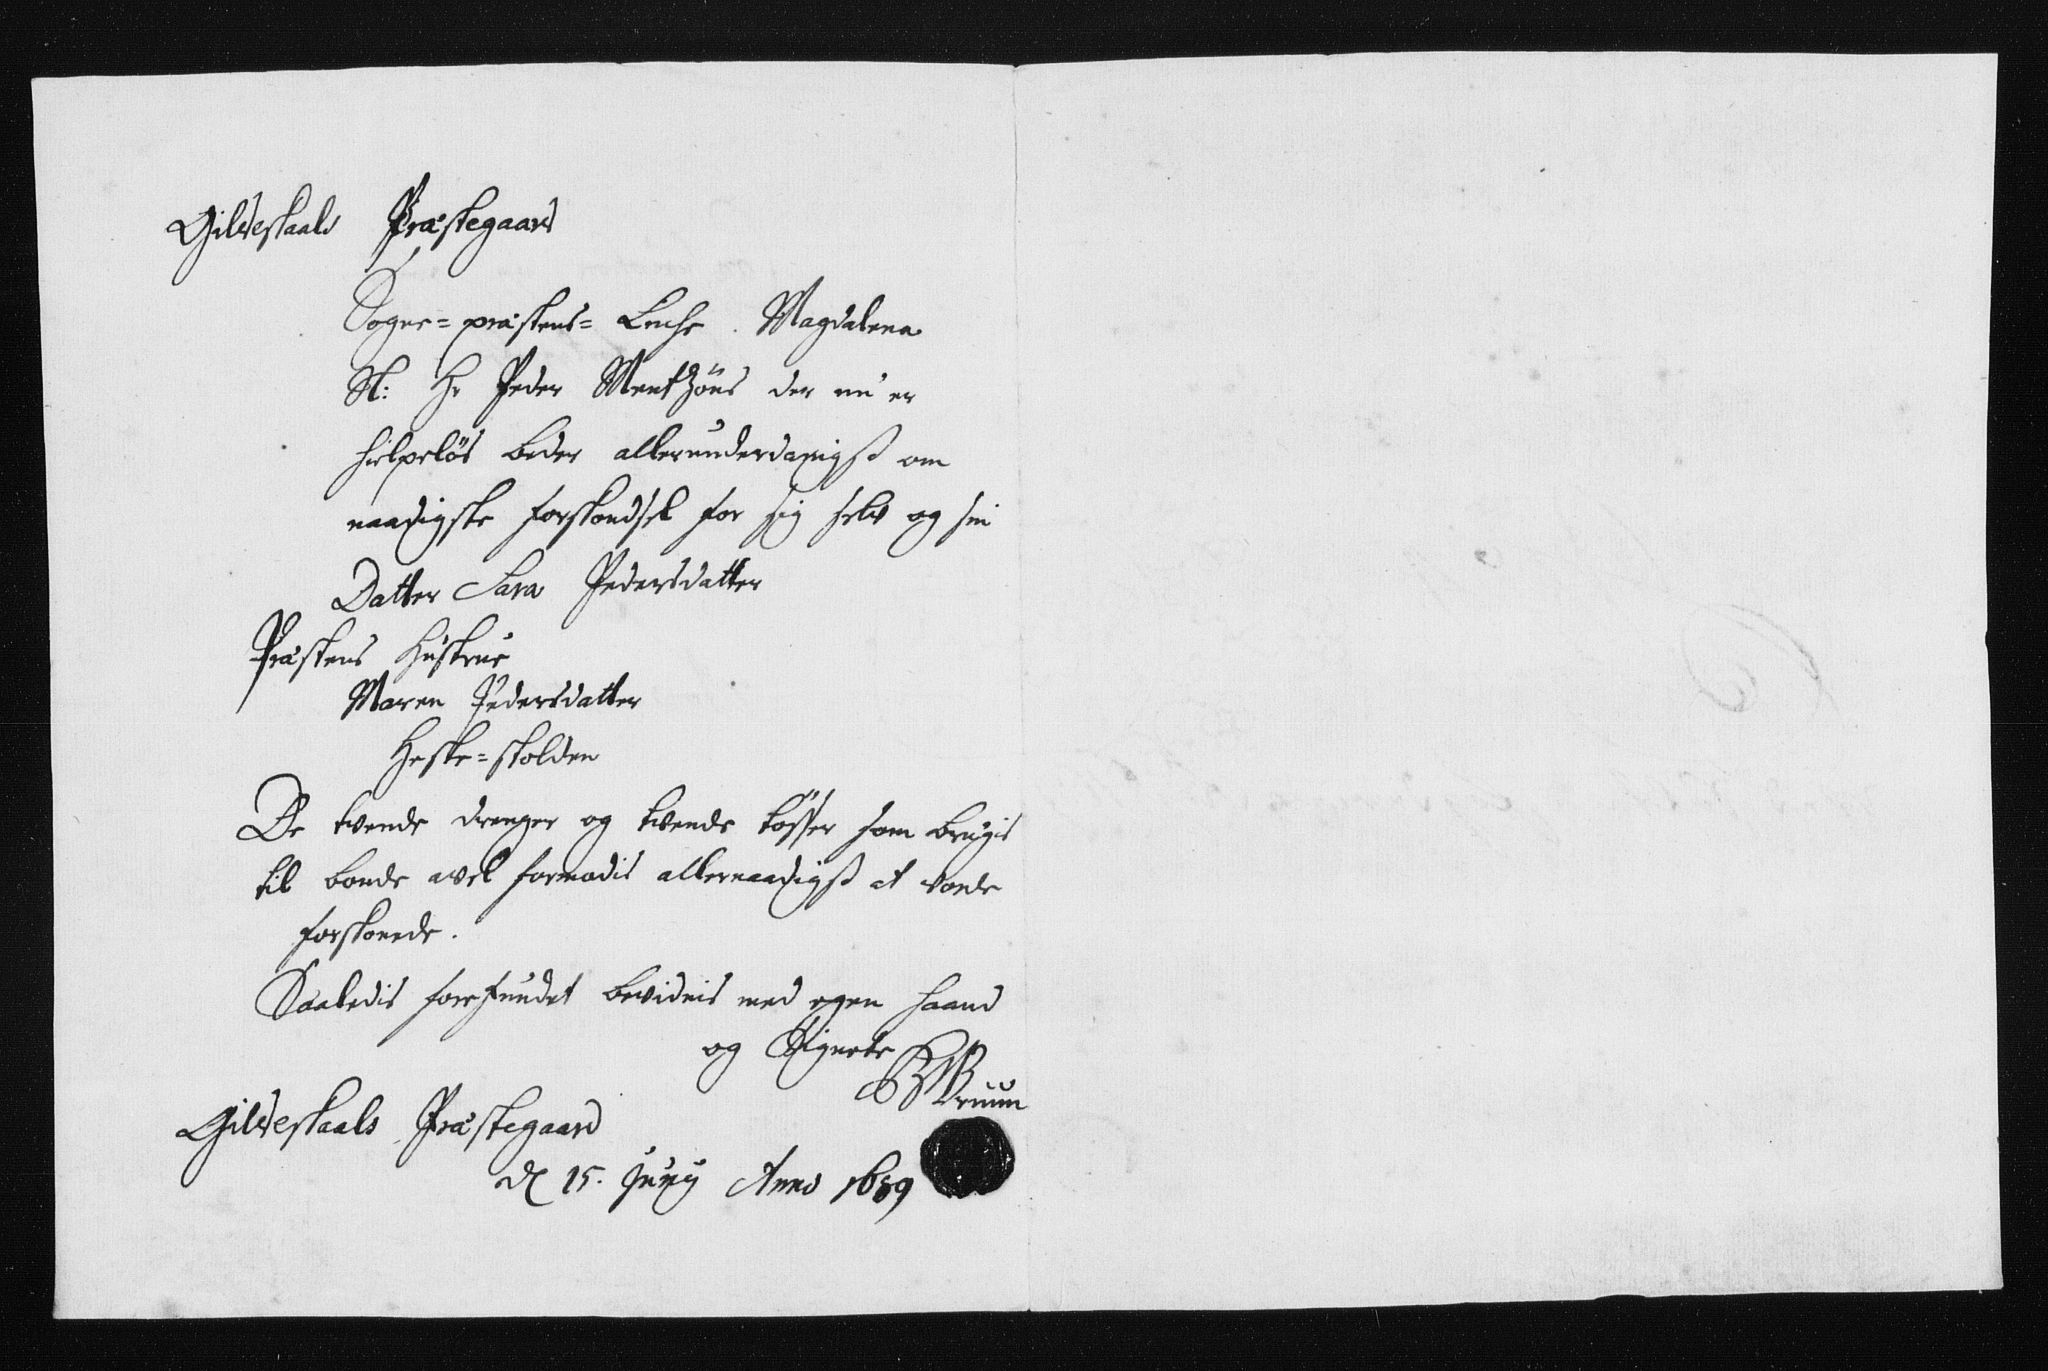 Gildeskaals Præstegaard
Sogne=præstens= Enche. Magdalena
Sl: Hr Peder Mentzöns der nu er
hielpelös beder allerunderdanigst om
naadigste forskondsel for sig selv og sin
Datter Sara Pedersdatter
Præstens Hústrue
Maren Pedersdatter
Heste=skolden
De tvende drenger og tvende tösser som brúgis
til bonde avel formodis allernaadigst at vorde
forskonede.
Saaledis forefundet bevidnis med egen haand
og Signete
Bruun
Gildeskaals Præstegaard
d 15. Juny Anno 1689